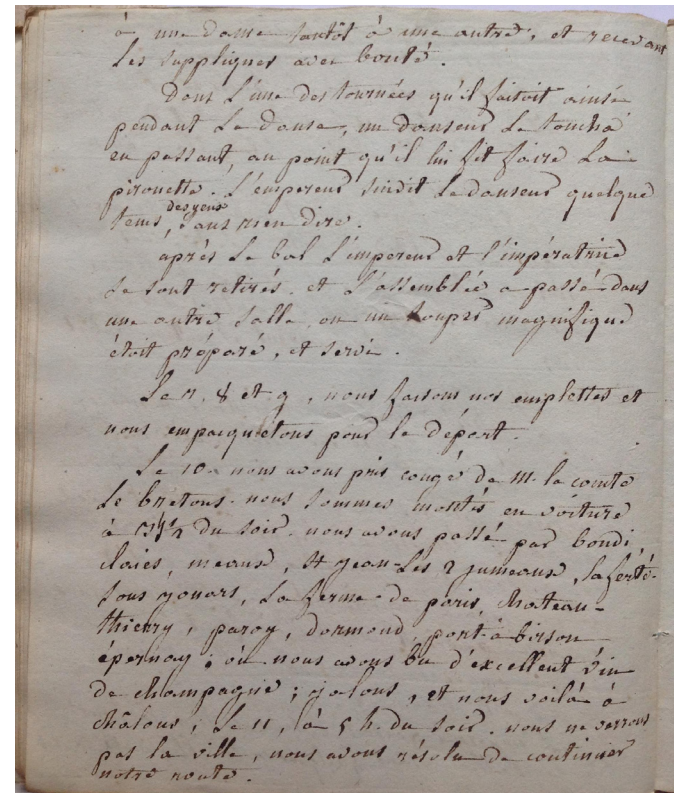 à une dame tantôt à une autre, et recevant
les suppliques avec bonté.
Dans l'une des tournées qu'il faisoit ainsi
pendant la danse, un danseur le toucha
en passant, au point qu'il lui fit faire la
pirouette. L'empereur suivit le danseur quelque
tems des yeux, sans rien dire.
après le bal l'empereur et l'impératrice
se sont retirés. et l'assemblée a passé dans
une autre salle, ou un souper magnifique
étoit préparé, et servi.
Le 7, 8 et 9, nous faisons nos emplettes et
nous empacquetons pour le départ.
Le 10 nous avons pris congé de M. le comte
le bretons. nous sommes montés en voiture
à 7 h 1/2 du soir. nous avons passé par bondi,
claies, meaux, St jean les 2 jumeaux, la ferté-
sous jouars, la ferme de paris, chateau-
thierry, paroy, dormond, port-à-binson
épernay ; où nous avons bu d'excellent vin
de champagne ; jalons, et nous voilà à
châlons, le 11, à 5 h. du soir. nous ne verrons
pas la ville, nous avons résolu de continuer
notre route.